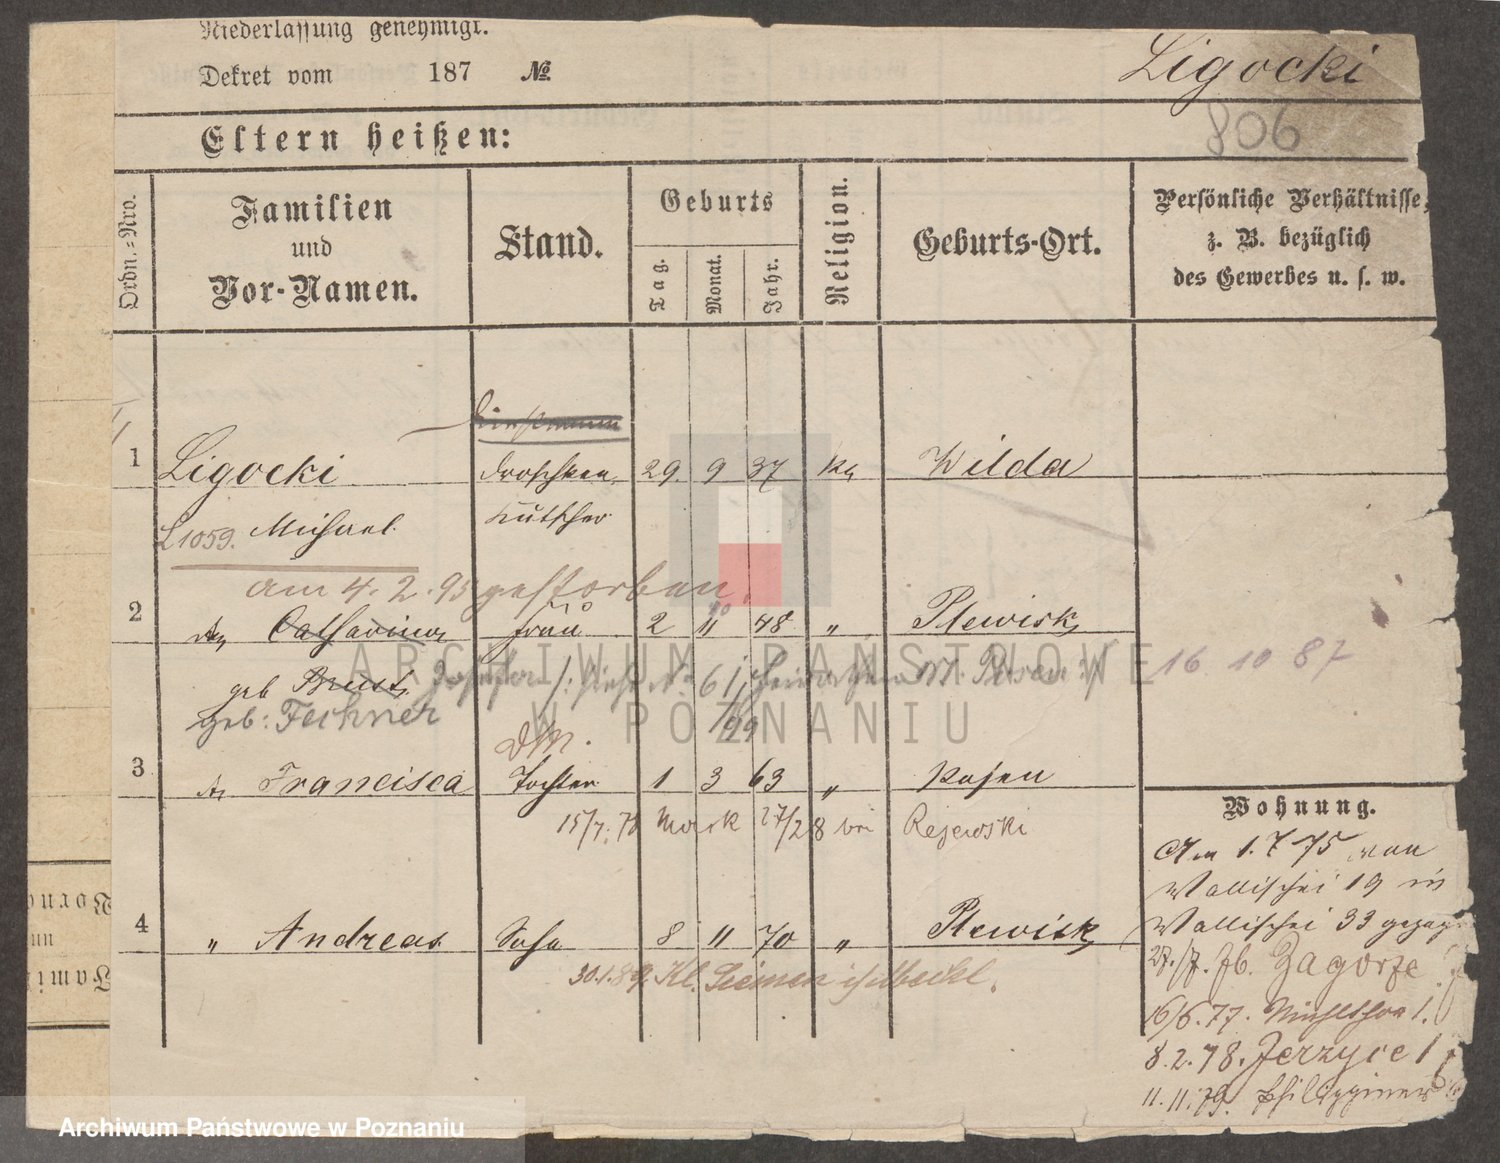 Niederlassung genehmigt.
Dekret vom 187 №
Ligocki
806
Eltern heißen:
Ordn.-Nro.
Familien
und
Vor-Namen.
Stand.
Geburts
Tag.
Monat.
Jahr.
Religion.
Geburts-Ort.
Persönliche Verhältnisse,
z. B. bezüglich
des Gewerbes u. s. w.
1 Ligocki Droschken 29. 9 37 Wilda
L 1059. Michael Kutscher
am 4. 2. 95 gestorben.
2 Catharina Frau 2 11 48 " Plewisk
geb
16 10 87
geb: Fechner
3 Francisca Tochter 1 3 63 " Posen
15/7. Mark 27/28 bei Rejewski
4 " Andreas Sohn 8 11 70 " Plewisk
30.1.89. Kl.
Wohnung.
Am 1. 7 75 von
Wallischei 19 in
Wallischei 33 gezog.
27./7. 76. Zagorze
16/6. 77.
8. 2. 78. Jerzyce 1
11. 11. 79.
ARCHIWUM PAŃSTWOWE
W POZNANIU
Archiwum Państwowe w Poznaniu